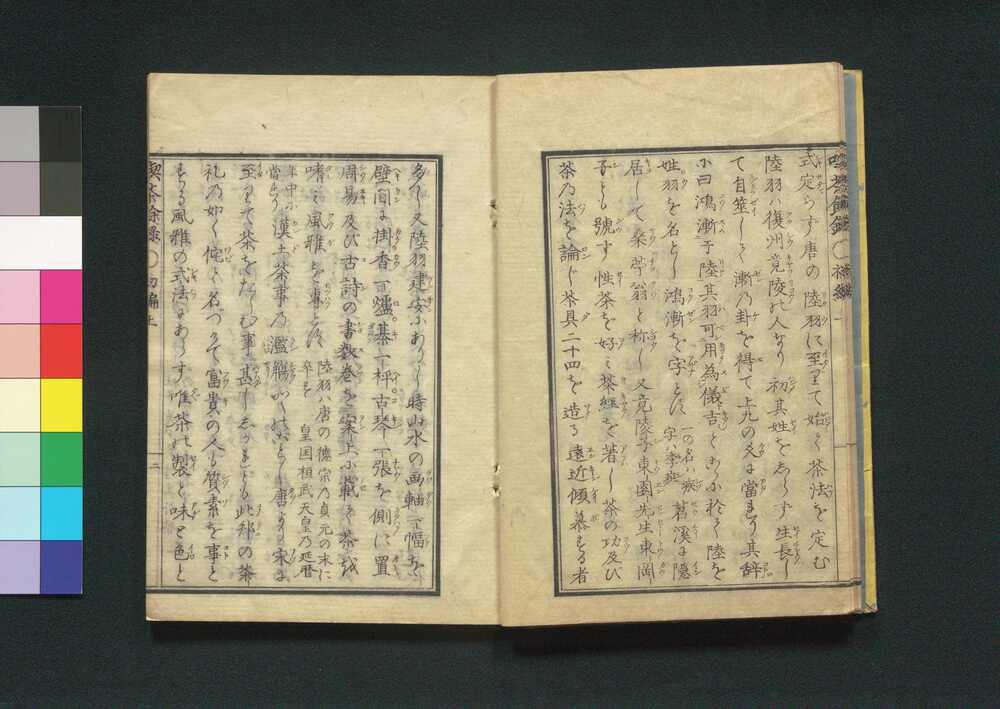 式定らず唐の陸羽に至りて始て茶法を定む
陸羽ハ復州竟陵の人なり初其姓をしらず生長し
て自筮して漸の卦を得て上九の爻に當るり其辞
に曰鴻漸于陸其羽可用為儀吉とあるに於て陸を
姓羽を名とし鴻漸を字とす一の名ハ疾字ハ李疵苕溪に隱
居して桑苧翁と称し又竟陵子東園先生東岡
子とも號す性茶を好ミ茶經を著し茶の功及び
茶乃法を論じ茶具二十四を造る遠近傾慕する者
多し又陸羽建安にありし時山水の画軸一幅を
壁間に掛香一爐棊一枰古琴一張を側に置
周易及び古詩の書数巻を案上に載て茶を
啫ミ風雅を事とす陸羽ハ唐の徳宗乃貞元の末に卒す皇国桓武天皇乃延暦
年中に當る漢土茶事乃濫觴かくのごとし唐より宋に
至りて茶をたしむ事甚ししかれども此邦の茶
礼乃如く侘と名づけて富貴の人も質素を事と
する風雅の式法にあらす唯茶の製と味と色と
喫茶餘録 初編上 二